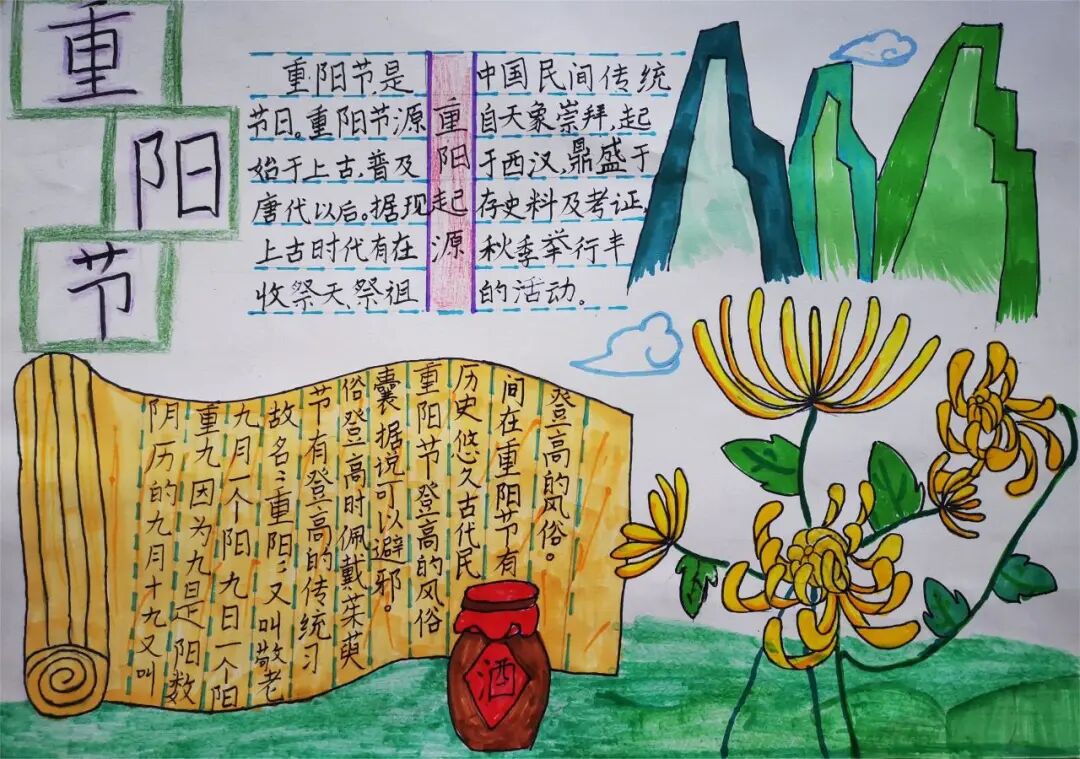 重
阳
节
重阳节是中国民间传统
节日。重阳节源自天象崇拜,起
始于上古,普及于西汉,鼎盛于
唐代以后。据现存史料及考证,
上古时代有在秋季举行丰
收祭天、祭祖的活动。
重阳起源
阴历的九月十九又叫
重九因为九是阳数
九月一个阳九日一个阳
故名:重阳:又叫敬老
节有登高的传统习
俗登高时佩戴茱萸
囊据说可以避邪。
重阳节登高的风俗
历史悠久古代民
间在重阳节有
登高的风俗。
酒